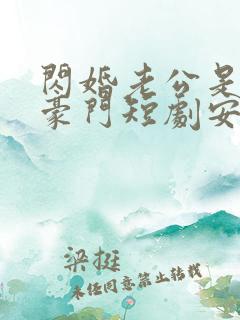 閃婚老公是
豪門短劇安
梁挺
未任同意禁止转载